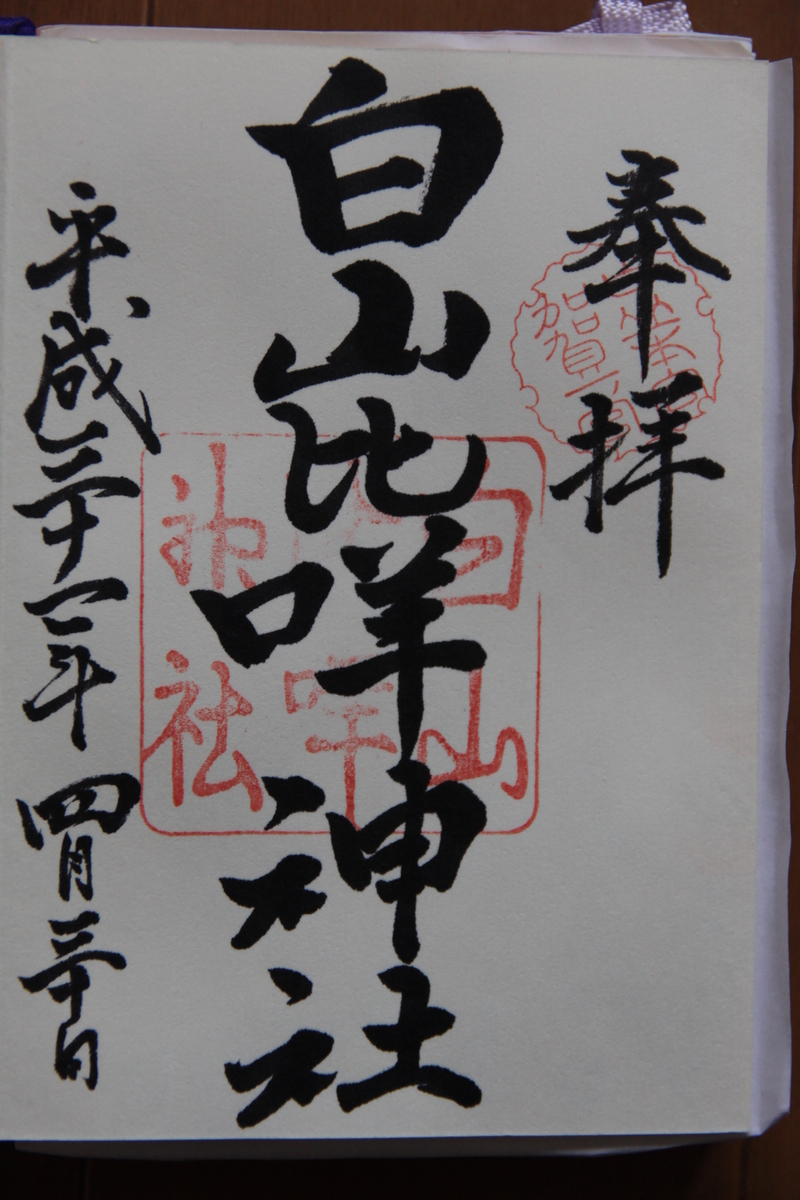 奉拝
白山比咩神社
平成三十一年四月三十日
賀一
白山
咩
神社